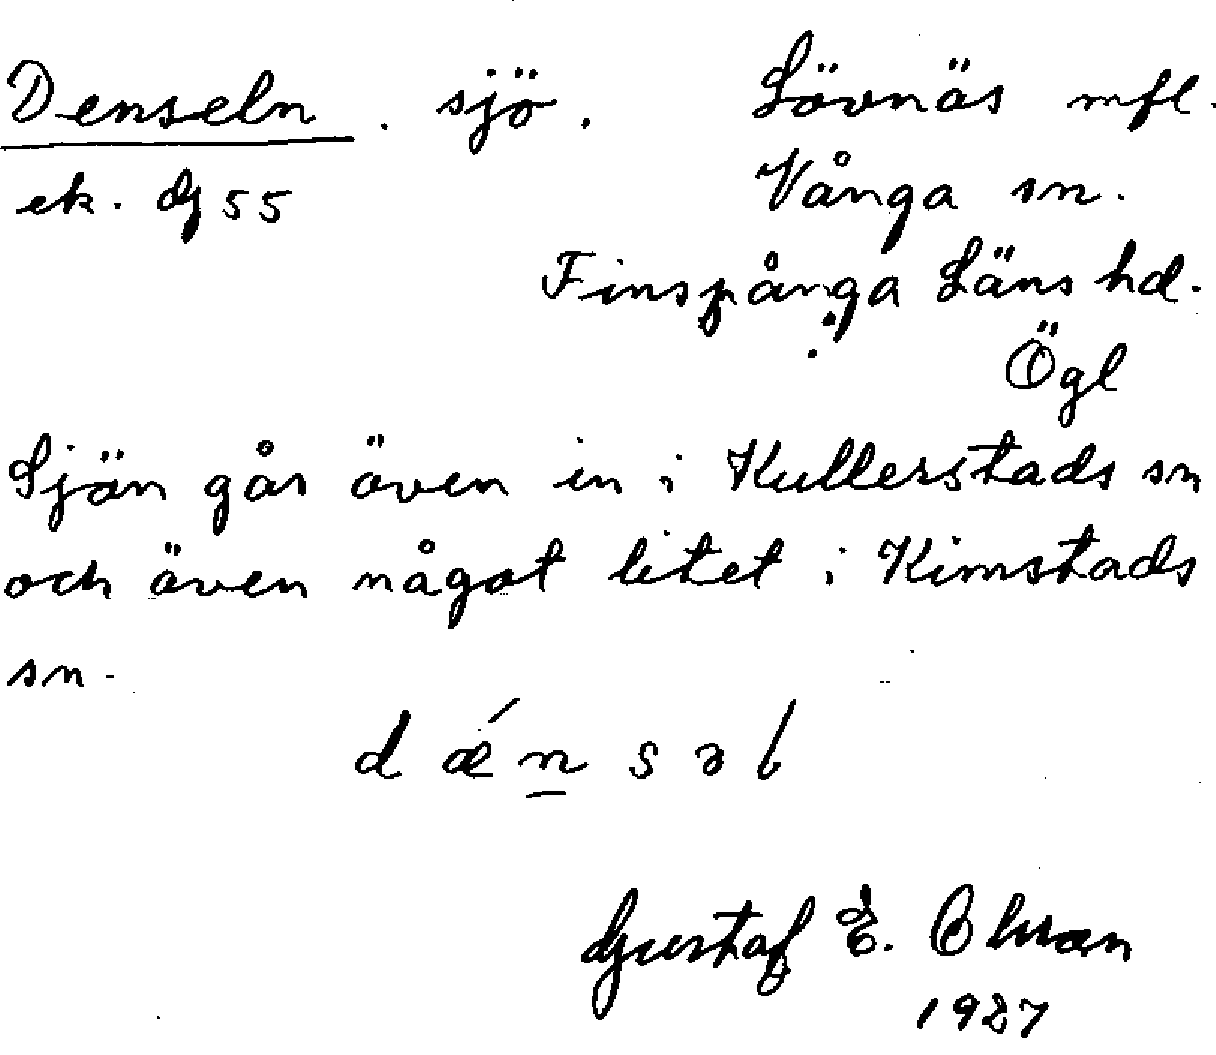 Denseln. sjö. Lövnäs mfl.
ek. dj 55 Vånga sn.
Finspånga Läns hd.
Ögl
Sjön går även in i Kullerstads sn
och även något litet i Kimstads
sn.
d ǽ n s ə l
Gustaf E. Ohlson
1927